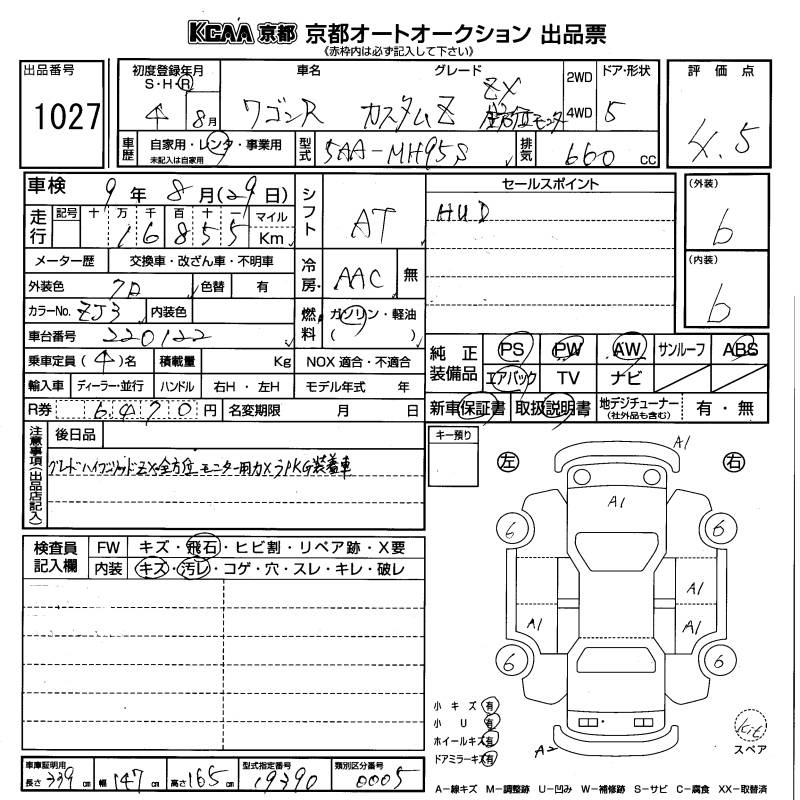 KCAA 京都 京都オートオークション 出品票
(赤枠内は必ず記入して下さい)
出品番号 1027
初度登録年月 S・H・R 4 8月
車名 ワゴンR カスタムZ
グレード ZX 全方位モニター
2WD 4WD
ドア・形状 5
評価点 4.5
車歴 自家用・レンタ・事業用 未記入は自家用
型式 5AA-MH95S
排気 660 CC
車検 9年 8月(29日)
シフト AT
セールスポイント
HUD
(外装) b
(内装) b
走行 記号 十 万 千 百 十 一 マイル Km
16855
メーター歴 交換車・改ざん車・不明車
冷房 AAC 無
外装色 クロ 色替 有
カラーNo. ZJ3 内装色
燃料 ガソリン・軽油 ( )
車台番号 220122
純正装備品 PS PW AW サンルーフ ABS
エアバック TV ナビ
乗車定員 (4)名 積載量 Kg NOX 適合・不適合
輸入車 ディーラー・並行 ハンドル 右H・左H モデル年式 年
R券 6470円 名変期限 月 日
新車保証書 取扱説明書 地デジチューナー (社外品も含む) 有・無
注意事項(出品店記入)
後日品
グレードハイブリッドZX 全方位モニター用カメラPKG装着車
キー預り
左 右
A1
A1
6 6
A1
A1 A1
6 6
A2
検査員記入欄 FW キズ・飛石・ヒビ割・リペア跡・X要
内装 キズ・汚レ・コゲ・穴・スレ・キレ・破レ
小キズ 有
小U 有
ホイールキズ 有
ドアミラーキズ 有
kit
スペア
車庫証明用 長さ 339 cm 幅 147 cm 高さ 165 cm
型式指定番号 19390
類別区分番号 0005
A−線キズ M−調整跡 U−凹み W−補修跡 S−サビ C−腐食 XX−取替済